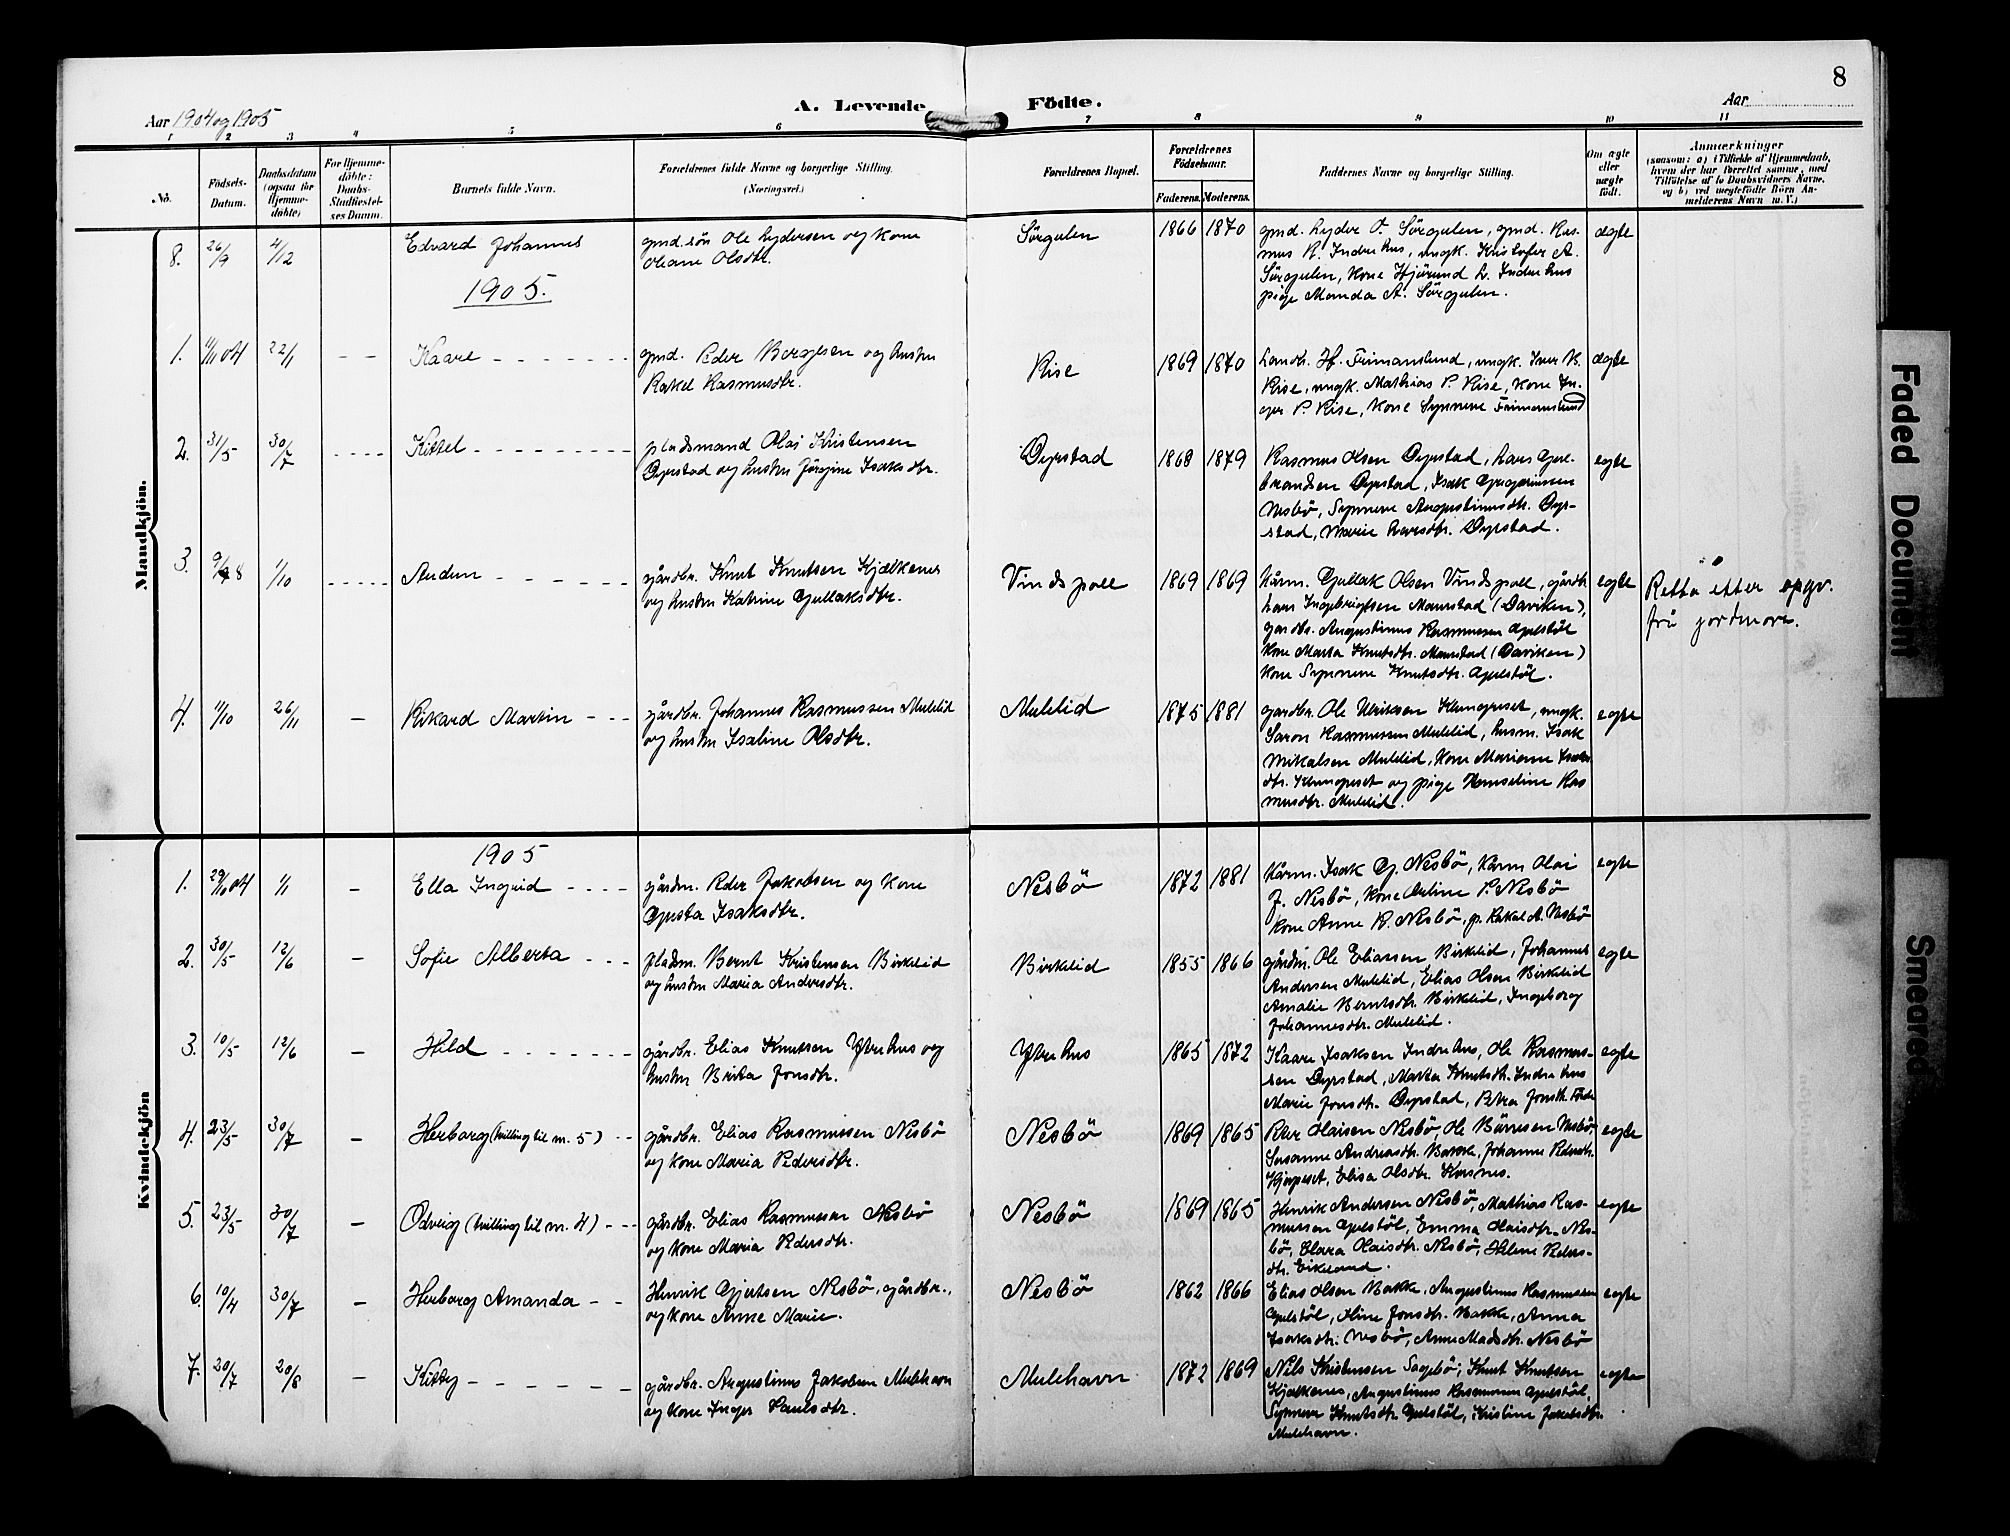 8
A. Levende Födte.
Aar 1904 og 1905
Aar
1 2 3 4 5 6 7 8 9 10 11
No.
Födsels-
Datum.
Daabsdatum
(ogsaa for
Hjemme-
döbte)
For Hjemme-
döbte:
Daabs-
Stadfæstel-
ses Datum.
Barnets fulde Navn.
Forældrenes fulde Navne og borgerlige Stilling.
(Næringsvei.)
Forældrenes Bopæl.
Forældrenes
Födselsaar.
Faderens. Moderens.
Faddernes Navne og borgerlige Stilling.
Om ægte
eller
uægte
födt.
Anmærkninger
(saasom: a) i Tilfælde af Hjemmedaab,
hvem der har forrettet samme, med
Tilföielse af to Daabsvidners Navne,
og b) ved uægtefödte Börn An-
melderens Navn m. V.)
Mandkjön.
8. 26/9 4/12 Edvard Johannes
gmd. sön Ole Lydersen og kone
Oliane Olsdtr.
Sörgulen 1866 1870
gmd. Lyder O. Sörgulen, gmd. Ras-
mus R. Inderhus, ungk. Kristofer A.
Sörgulen, kone Hjörund L. Inderhus
pige Manda A. Sörgulen.
ægte
1905.
1. 11/11 04 22/1 - - Kaare
gmd. Peder Borgesen og hustru
Rakel Rasmusdtr.
Rise 1869 1870
Landh. H. Frimanslund, ungk. Iver R.
Rise, ungk. Mathias P. Rise, kone In-
ger P. Rise, kone Synneve Frimanslund
ægte
2. 31/5 30/7 Kittel
pladsmand Olai Kristensen
Dyrstad og hustru Jörgine Isaksdtr.
Dyrstad 1868 1879
Rasmus Olsen Dyrstad, Lars Gul-
brandsen Dyrstad, Isak Gregoriussen
Nesbö, Synneve Augustinusdtr. Dyr-
stad, Marie Larsdtr. Dyrstad.
egte
3. 9/8 1/10 Audun
gårdbr. Knut Knutsen Kjølkenes
og hustru Katrine Gullaksdtr.
Vindspoll 1869 1869
Kårm. Gullak Olsen Vindspoll, gårdbr.
Lars Ingebrigtsen Maurstad (Daviken),
gardbr. Augustinus Rasmussen Gulstöl
kone Marta Knutsdtr. Maurstad (Daviken)
kone Synneve Knutsdtr. Gulstöl.
egte
Retta etter opgv.
frå jordmora.
4. 11/10 26/11 - Rikard Martin
gårdbr. Johannes Rasmussen Mulelid
og hustru Isaline Olsdtr.
Mulelid 1875 1881
gardbr. Ole Ulriksen Klungreset, ungk.
Saron Rasmussen Mulelid, husm. Isak
Mikalsen Mulelid, kone Marianne Isaks-
dtr. Klungreset og pige Hanseline Ras
musdtr. Mulelid.
egte
Kvindekjön
1905
1. 29/10 04 1/1 - Ella Ingrid
gårdm. Peder Jakobsen og kone
Gusta Isaksdtr.
Nesbö 1872 1881
Kårm. Isak G. Nesbö, Kårm Olai
J. Nesbö, kone Oline P. Nesbö
kone Anne R. Nesbö, p. Rakel A. Nesbö
egte
2. 30/5 12/6 - Sofie Alberta
pladsm. Bernt Kristensen Birkelid
og hustru Maria Andersdtr.
Birkelid 1855 1866
gårdm. Ole Eliassen Birkelid, Johannes
Andersen Mulelid, Elias Olsen Birkelid
Amalie Berntsdtr. Birkelid, Ingeborg
Johannesdtr. Mulelid.
egte
3. 10/5 12/6 - Hild
gårdbr. Elias Knutsen Ytrehus og
hustru Brita Jonsdtr.
Ytrehus 1865 1872
Kaare Isaksen Indrehus, Ole Rasmus-
sen Dyrstad, Marta Knutsdtr. Indrehus
Marie Jonsdtr. Dyrstad, Petra Jonsdtr. Förde
egte
4. 23/5 30/7 - Herborg (tvilling til nr. 5)
gårdbr. Elias Rasmussen Nesbö
og kone Maria Pedersdtr.
Nesbö 1869 1865
Peer Olaisen Nesbö, Ole Börresen Nesbö
Susanne Andreasdtr. Bakke, Johanne Pedersdtr.
Hjupeset, Elisa Olsdtr. Hasnes.
egte
5. 23/5 30/7 - Odveig (tvilling til nr. 4)
gårdbr. Elias Rasmussen Nesbö
og kone Maria Pedersdtr.
Nesbö 1869 1865
Henrik Andersen Nesbö, Mathias Ras-
mussen Gulstöl, Emma Olaisdtr. Nes-
bö, Clara Olaisdtr. Nesbö, Helene Peders-
dtr. Eikeland.
egte
6. 10/4 30/7 - Herborg Amanda
Henrik Gjertsen Nesbö, gårdbr.,
og kone Anne Marie.
Nesbö 1862 1866
Elias Olsen Bakke, Augustinus Rasmussen
Gulstöl, Oline Jonsdtr. Bakke, Anna
Isaksdtr. Nesbö, Anne Madsdtr. Nesbö
egte
7. 20/7 20/8 - Kitty
gårdbr. Augustinus Jakobsen Mulehavn
og kone Inger Paulsdtr.
Mulehavn 1872 1869
Nils Kristensen Sagebö, Knut Knutsen
Kjølkenes, Augustinus Rasmussen Gulstöl,
Synneve Knutsdtr Gulstöl, Kristine Jakobsdtr.
Mulehavn.
egte
Faded Document
Smeared